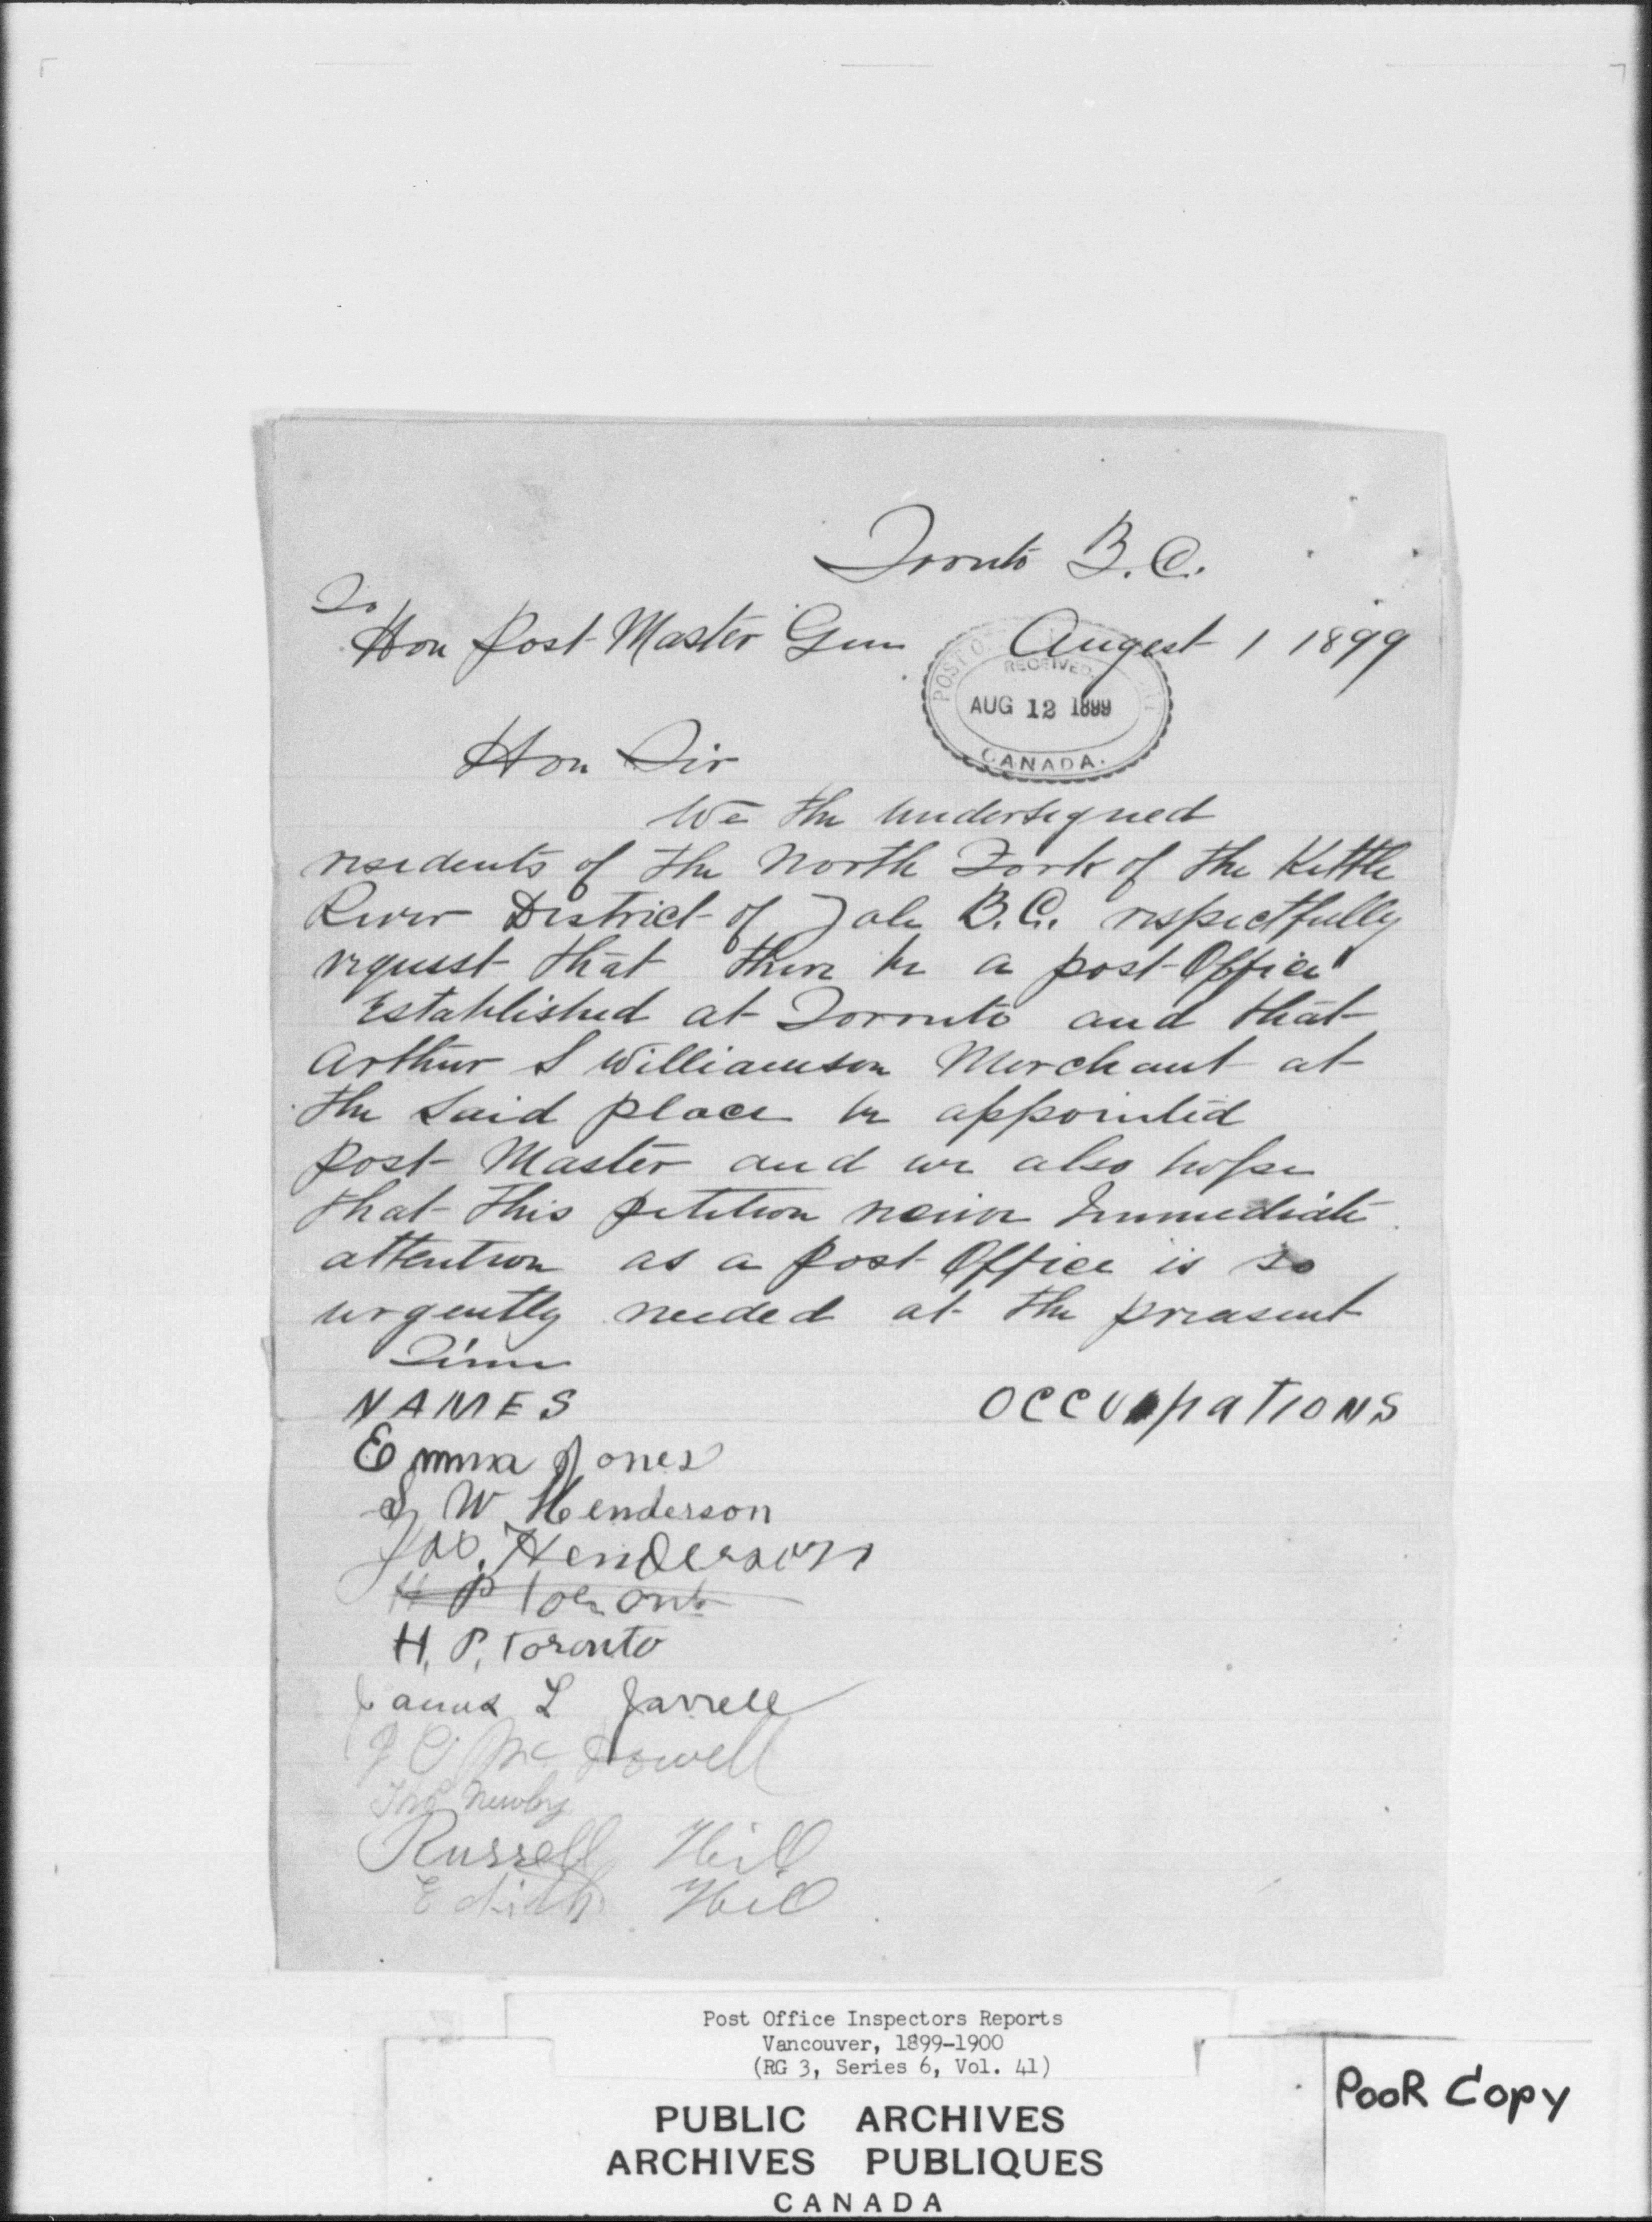 Toronto B.C.
To
Hon Post Master Gen August 1 1899
POST O
RECEIVED
AUG 12 1899
CANADA.
Hon Sir
We the undersigned
residents of the North Fork of the Kettle
River District of Yale B.C. respectfully
request that there be a post Office
Established at Toronto and that
Arthur S Williamson Merchant at
the said place be appointed
Post Master and we also hope
that this petition receive Immediate
attention as a Post Office is so
urgently needed at the preasent
Time
NAMES OCCUPATIONS
Emma Jones
S W Henderson
Jas. Henderson
H P Toronto
H. P. Toronto
James L Jarrell
J C McDowell
Thos Newby
Russell Hill
Edith Hill
Post Office Inspectors Reports
Vancouver, 1899-1900
(RG 3, Series 6, Vol. 41)
PUBLIC ARCHIVES
ARCHIVES PUBLIQUES
CANADA
POOR COPY